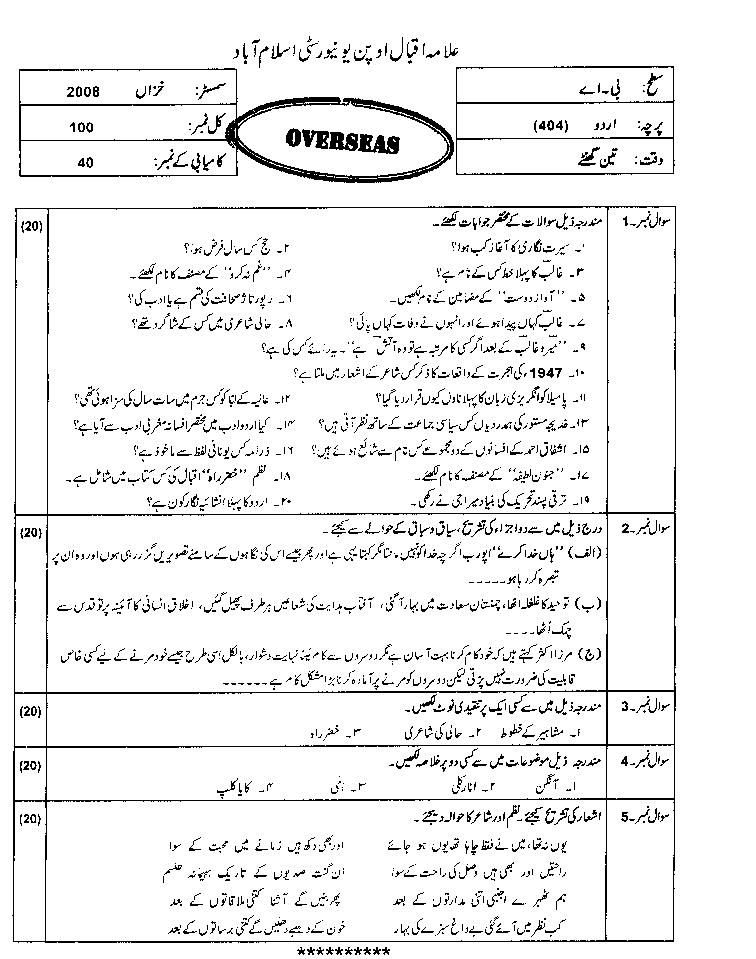 علامہ اقبال اوپن یونیورسٹی اسلام آباد
سطح: بی۔اے
سمسٹر: خزاں 2008
پرچہ: اردو (404)
OVERSEAS
کل نمبر: 100
وقت: تین گھنٹے
کامیابی کے نمبر: 40
سوال نمبر۔1 مندرجہ ذیل سوالات کے مختصر جوابات لکھئے۔ (20)
۱۔ سیرت نگاری کا آغاز کب ہوا؟ ۲۔ حج کس سال فرض ہوا؟
۳۔ غالب کا پہلا خط کس کے نام ہے؟ ۴۔ "غم نہ کرو" کے مصنف کا نام لکھئے۔
۵۔ "آواز دوست" کے مضامین کے نام لکھیں۔ ۶۔ رپورتاژ صحافت کی قسم ہے یا ادب کی؟
۷۔ غالب کہاں پیدا ہوئے اور انہوں نے وفات کہاں پائی؟ ۸۔ حالی شاعری میں کس کے شاگرد تھے؟
۹۔ "میر و غالب کے بعد اگر کسی کا مرتبہ ہے تو وہ آتش ہے"۔ یہ رائے کس کی ہے؟
۱۰۔ 1947ء کی ہجرت کے واقعات کا ذکر کس شاعر کے اشعار میں ملتا ہے؟
۱۱۔ پامیلا کو انگریزی زبان کا پہلا ناول کیوں قرار دیا گیا؟ ۱۲۔ عالیہ کے ابا کو کس جرم میں سات سال کی سزا ہوئی تھی؟
۱۳۔ خدیجہ مستور کی ہمدردیاں کس سیاسی جماعت کے ساتھ نظر آتی ہیں؟ ۱۴۔ کیا اردو ادب میں مختصر افسانہ مغربی ادب سے آیا ہے؟
۱۵۔ اشفاق احمد کے افسانوں کے دو مجموعے کس نام سے شائع ہوئے ہیں؟ ۱۶۔ ڈرامہ کس یونانی لفظ سے ماخوذ ہے؟
۱۷۔ "جنون لطیفہ" کے مصنف کا نام لکھئے۔ ۱۸۔ نظم "خضر راہ" اقبال کی کس کتاب میں شامل ہے۔
۱۹۔ ترقی پسند تحریک کی بنیاد میرا جی نے رکھی۔ ۲۰۔ اردو کا پہلا انشائیہ نگار کون ہے؟
سوال نمبر۔2 درج ذیل میں سے دو اجزاء کی تشریح، سیاق و سباق کے حوالے سے کیجئے۔ (20)
(الف) "ہاں خدا کرے" اپورب اگرچہ خدا کو نہیں مانتا مگر کہتا یہی ہے اور پھر جیسے اس کی نگاہوں کے سامنے تصویریں گزر رہی ہوں اور وہ ان پر
تبصرہ کر رہا ہو۔۔۔۔۔
(ب) توحید کا غلغلہ اٹھا، چمنستان سعادت میں بہار آگئی، آفتاب ہدایت کی شعاعیں ہر طرف پھیل گئیں، اخلاق انسانی کا آئینہ پرتو قدس سے
چمک اُٹھا۔۔۔۔
(ج) مرزا اکثر کہتے ہیں کہ خود کام کرنا بہت آسان ہے مگر دوسروں سے کام لینا نہایت دشوار، بالکل اسی طرح جیسے خود مرنے کے لیے کسی خاص
قابلیت کی ضرورت نہیں پڑتی لیکن دوسروں کو مرنے پر آمادہ کرنا بڑا مشکل کام ہے۔۔۔۔۔۔
سوال نمبر۔3 مندرجہ ذیل میں سے کسی ایک پر تنقیدی نوٹ لکھیں۔ (20)
۱۔ مشاہیر کے خطوط ۲۔ حالی کی شاعری ۳۔ خضر راہ
سوال نمبر۔4 مندرجہ ذیل موضوعات میں سے کسی دو پر خلاصہ لکھیں۔ (20)
۱۔ آنگن ۲۔ انارکلی ۳۔ ۴۔ کایا کلپ
سوال نمبر۔5 اشعار کی تشریح کیجئے۔ نظم اور شاعر کا حوالہ دیجئے۔ (20)
یوں نہ تھا، میں نے فقط چاہا تھا یوں ہو جائے اور بھی دکھ ہیں زمانے میں محبت کے سوا
راحتیں اور بھی ہیں وصل کی راحت کے سوا ان گنت صدیوں کے تاریک بہیمانہ طلسم
ہم ٹھہرے اجنبی اتنی مدارتوں کے بعد پھر بنیں گے آشنا کتنی ملاقاتوں کے بعد
کب نظر میں آئے گی بے داغ سبزے کی بہار خون کے دھبے دھلیں گے کتنی برساتوں کے بعد
**********